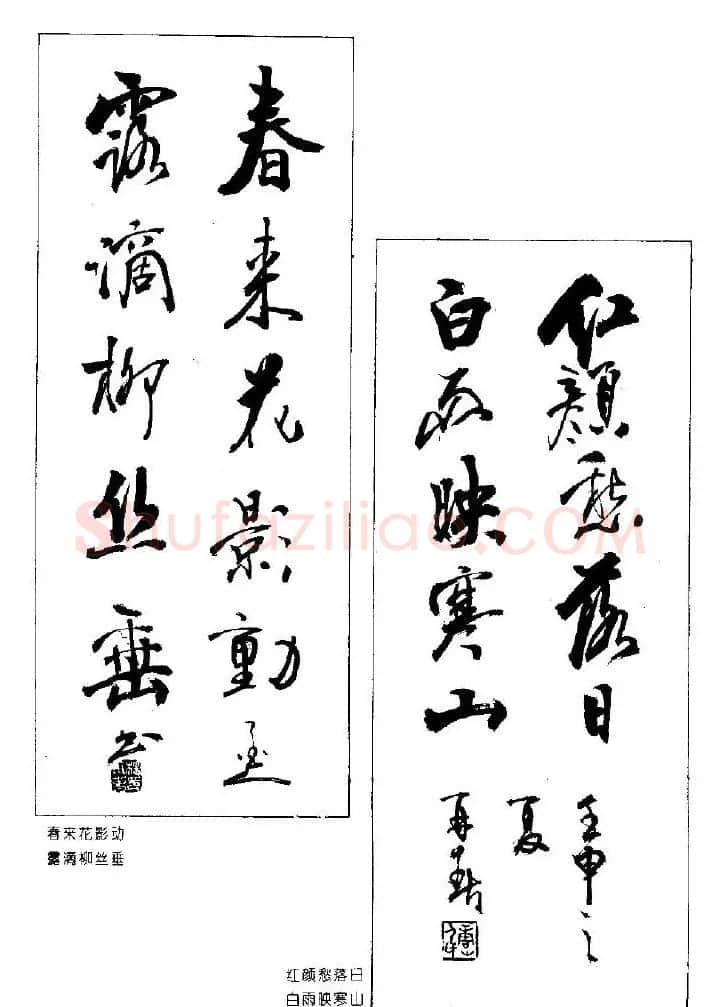 春来花影動
露滴柳丝垂
书
春来花影动
露滴柳丝垂
红顔愁落日
白雨映寒山
壬申之
夏
红颜愁落日
白雨映寒山
Shufaziliao.COM